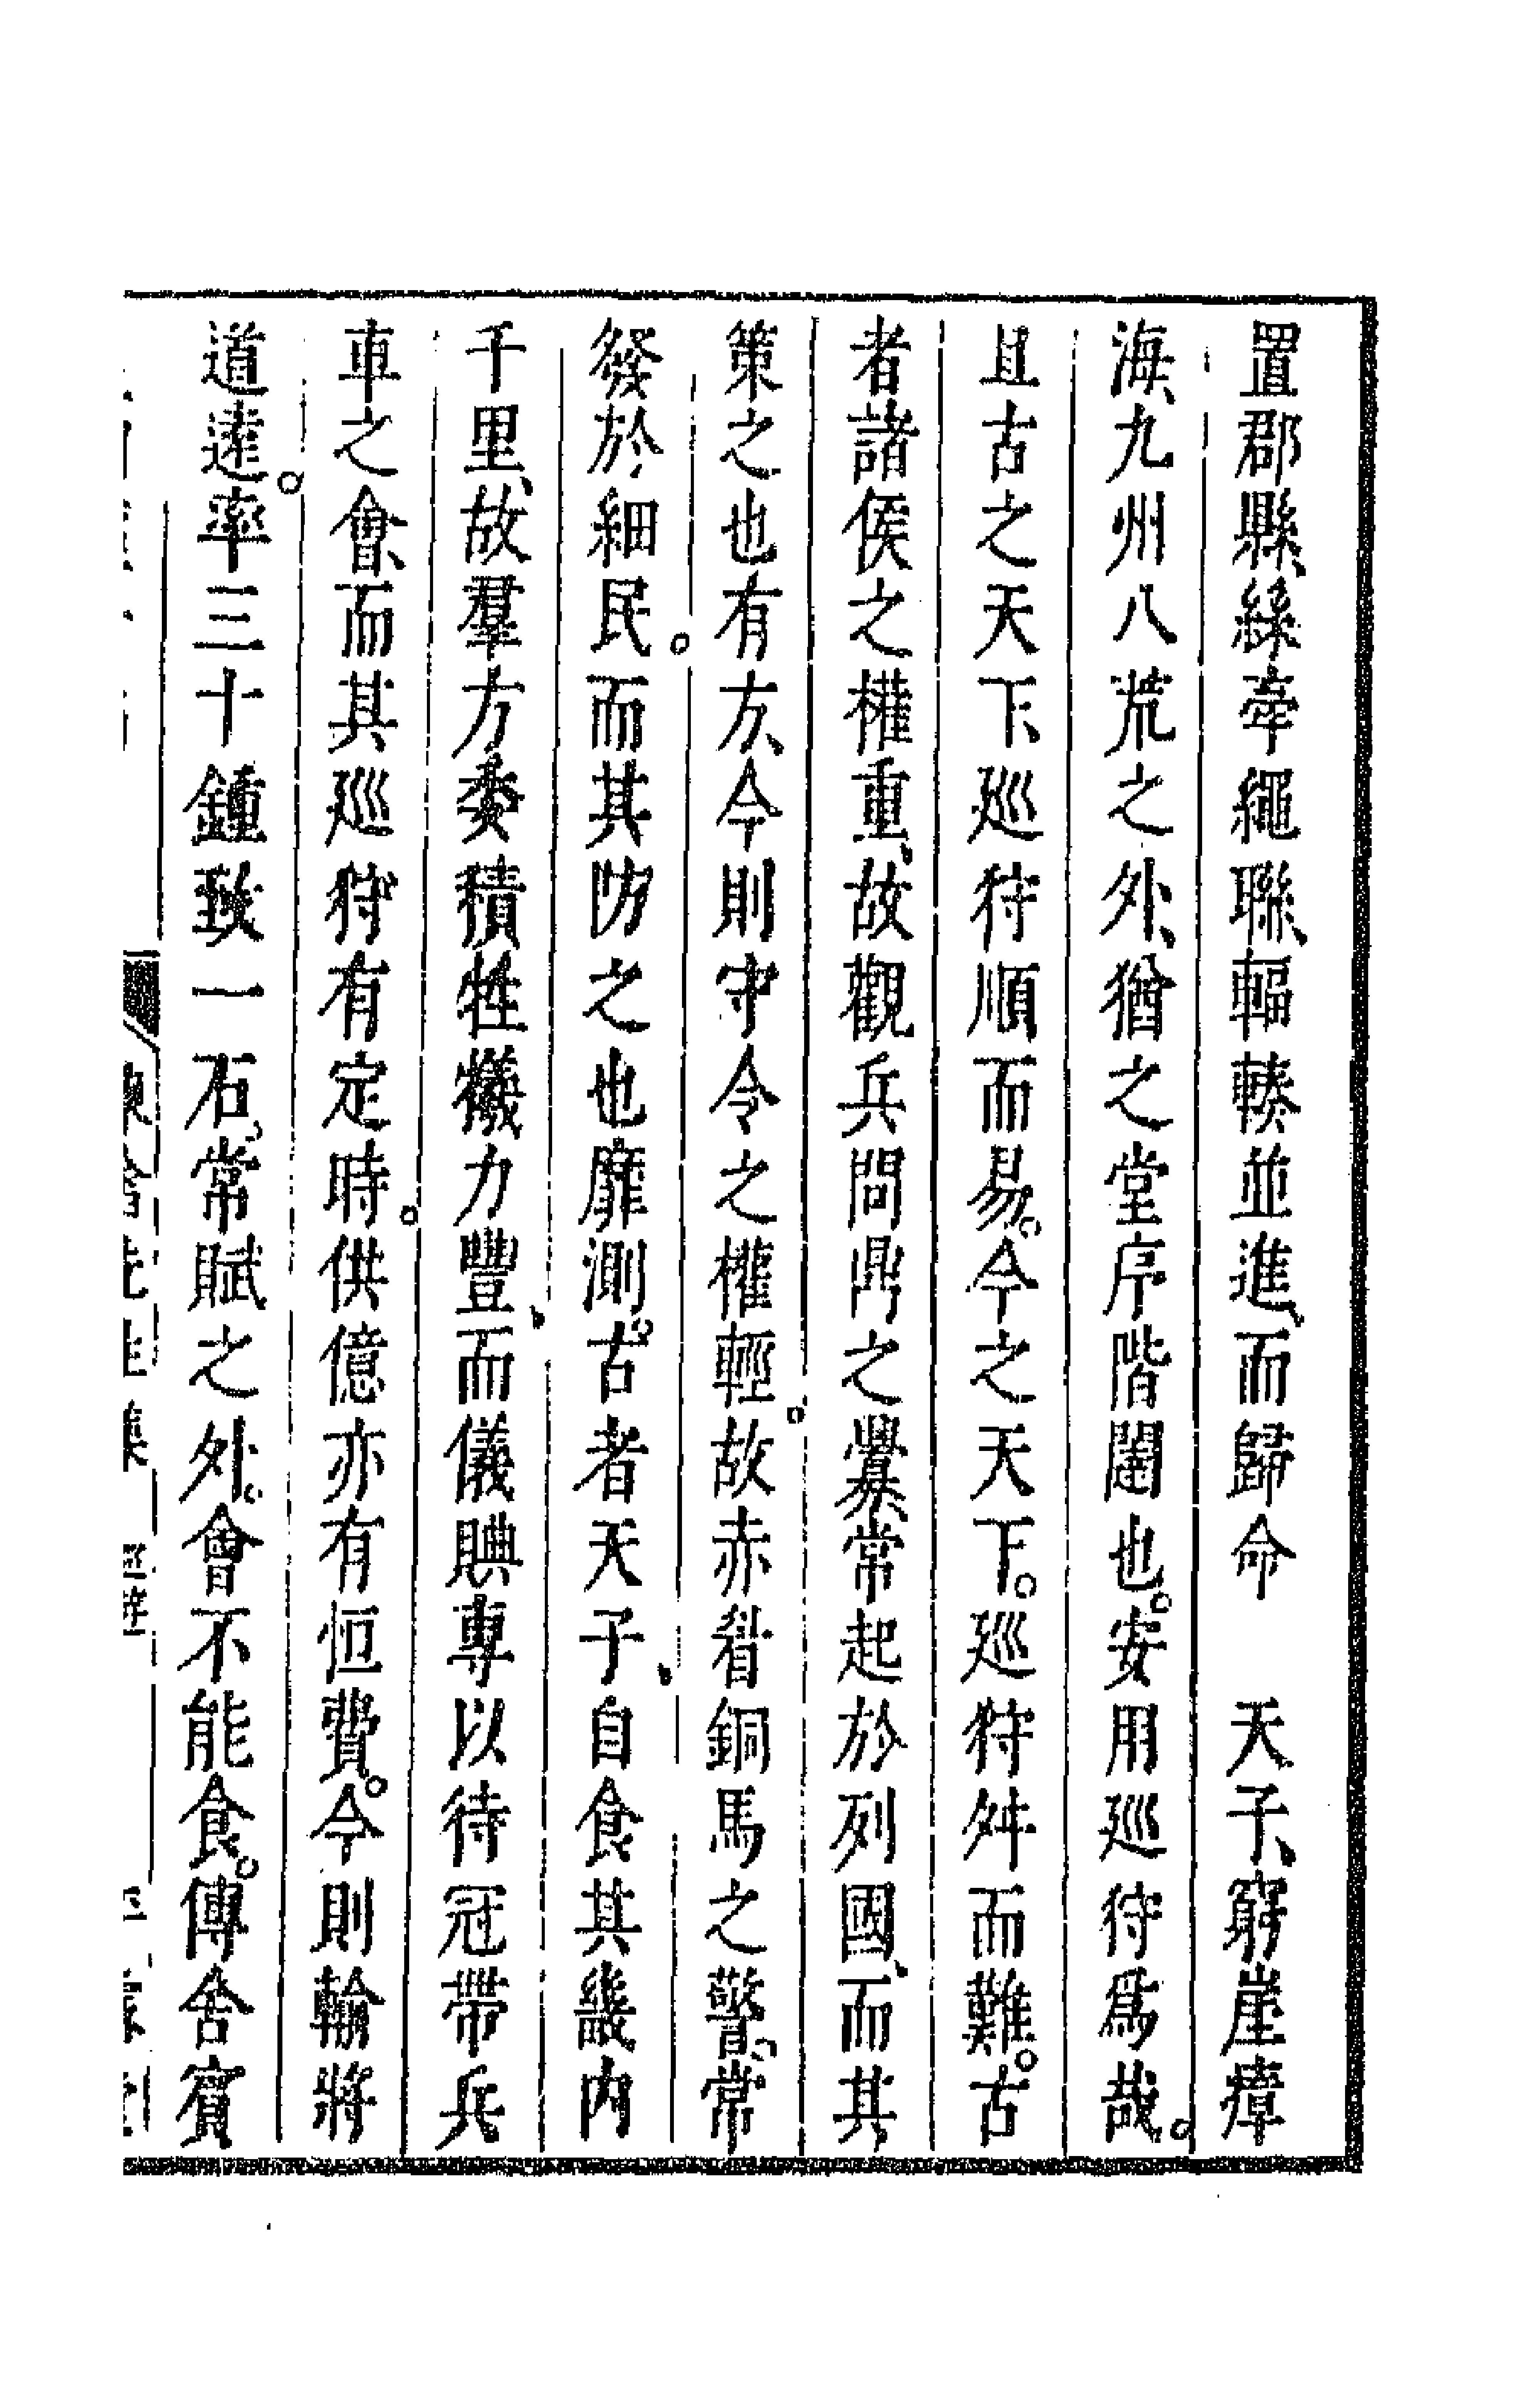 置郡縣、絲牽繩聯、輻輳並進、而歸命　天子、窮崖瘴
海、九州八荒之外、猶之堂序階闥也。安用廵狩爲哉。
且古之天下、廵狩順而易。今之天下。廵狩舛而難。古
者諸侯之權重、故觀兵問鼎之釁、常起於列國、而其
策之也有方、今則守令之權輕。故赤眉銅馬之警、常
發於細民。而其防之也靡測。古者天子、自食其畿內
千里、故羣方委積牲犧力豐、而儀賟專以待冠帶兵
車之會、而其廵狩有定時。供億亦有恒費。今則輸將
道達。率三十鍾致一石、常賦之外。會不能食。傳舍賓